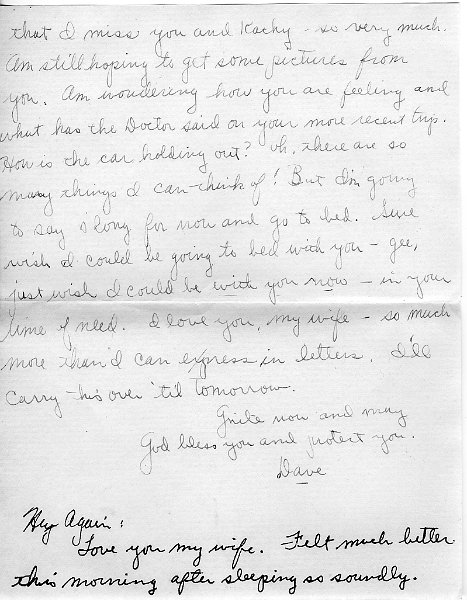 that I miss you and Kachy - so very much.
Am still hoping to get some pictures from
you. Am wondering how you are feeling and
what has the Doctor said on your more recent trip.
How is the car holding out? Oh, there are so
many things I can think of! But I'm going
to say s'long for now and go to bed. Sure
wish I could be going to bed with you - gee,
just wish I could be with you now - in your
time of need. I love you, my wife - so much
more than I can express in letters. I'll
carry this over 'til tomorrow.
Gnite now and may
God bless you and protect you.
Dave
Hey Again:
Love you my wife. Felt much better
this morning after sleeping so soundly.